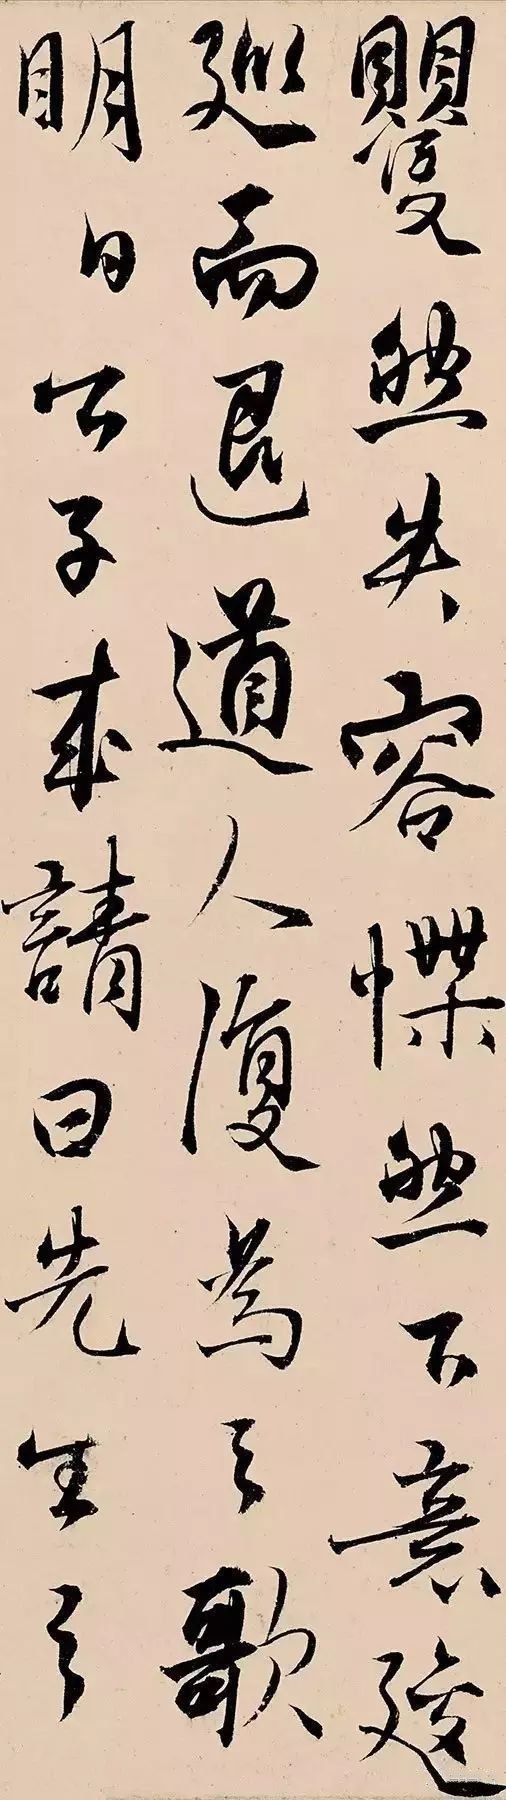 矍然失容惵然下意逡
巡而退道人復為之歌
明日公子來請曰先生之